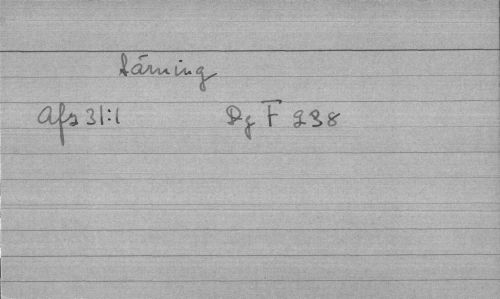 tärning
Afs 31:1 Dg F 238